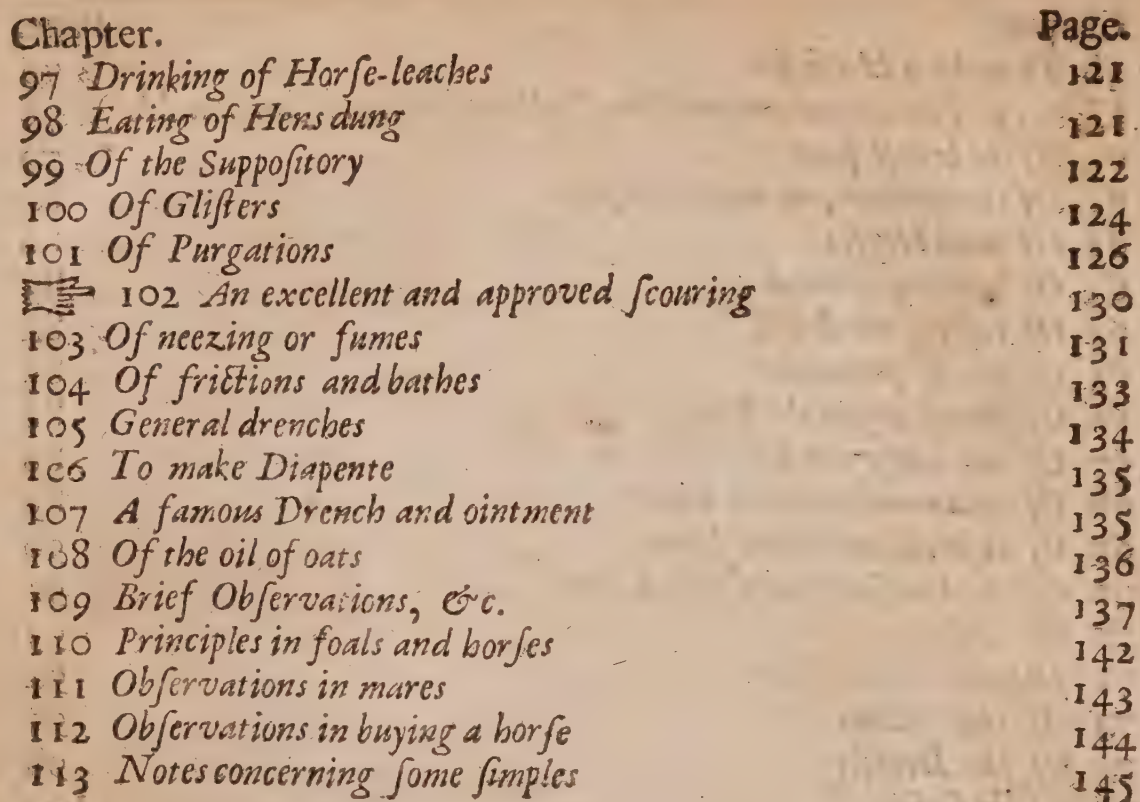 Chapter. Page.
97 Drinking of Horſe-leaches 121
98 Eating of Hens dung 121
99 Of the Suppoſitory 122
100 Of Gliſters 124
101 Of Purgations 126
☞ 102 An excellent and approved ſcouring 130
103 Of neezing or fumes 131
104 Of frictions and bathes 133
105 General drenches 134
106 To make Diapente 135
107 A famous Drench and ointment 135
108 Of the oil of oats 136
109 Brief Obſervations, &c. 137
110 Principles in foals and horſes 142
111 Obſervations in mares 143
112 Obſervations in buying a horſe 144
113 Notes concerning ſome ſimples 145